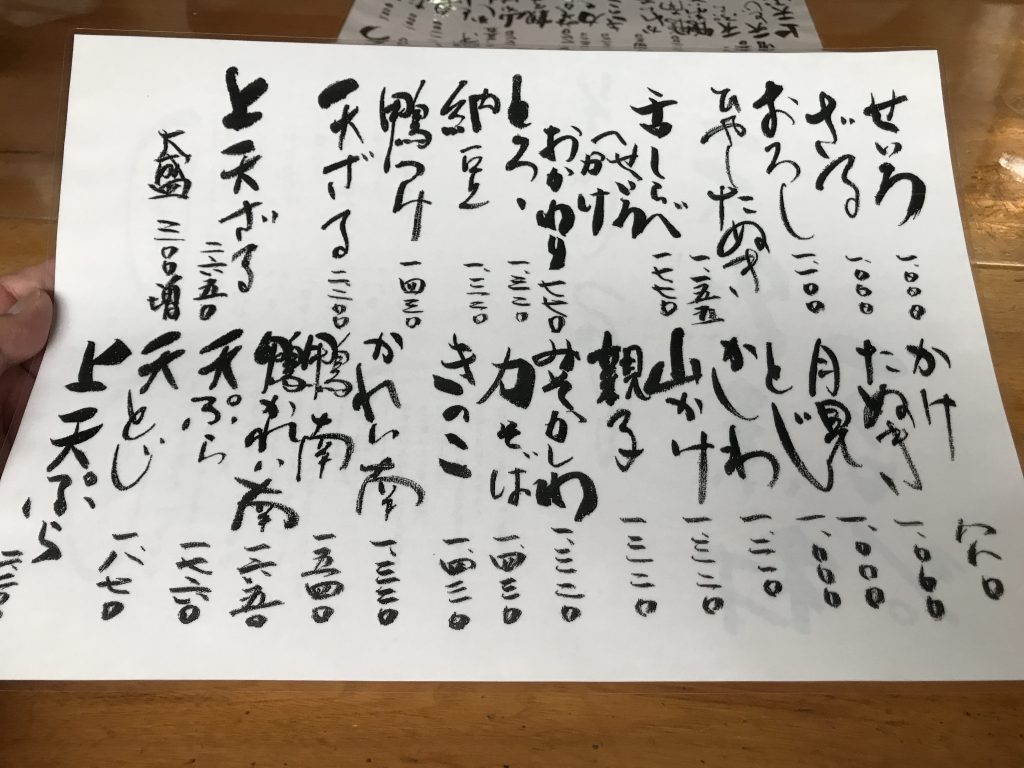 せいろ 一、〇〇〇
ざる 一、〇〇〇
おろし 一、一〇〇
ひやしたぬき
舌しらべ 一七七〇
へせいろ
かけ
おかわり 七七〇
とろゝ 一、三二〇
納豆 一、三二〇
鴨つけ 一四三〇
天ざる 二、二〇〇
上天ざる 二、六五〇
大盛 三〇〇増
かけ
たぬき 一、〇六〇
月見 一、〇〇〇
とじ 一、〇〇〇
かしわ 一、二一〇
山かけ 一、三二〇
親子 一三二〇
みそかしわ 一、三二〇
力そば 一四三〇
きのこ 一、四三〇
かれい南 一、三三〇
鴨南 一五四〇
鴨かれい南 一六五〇
天ぷら 一七六〇
天とじ 一八七〇
上天ぷら